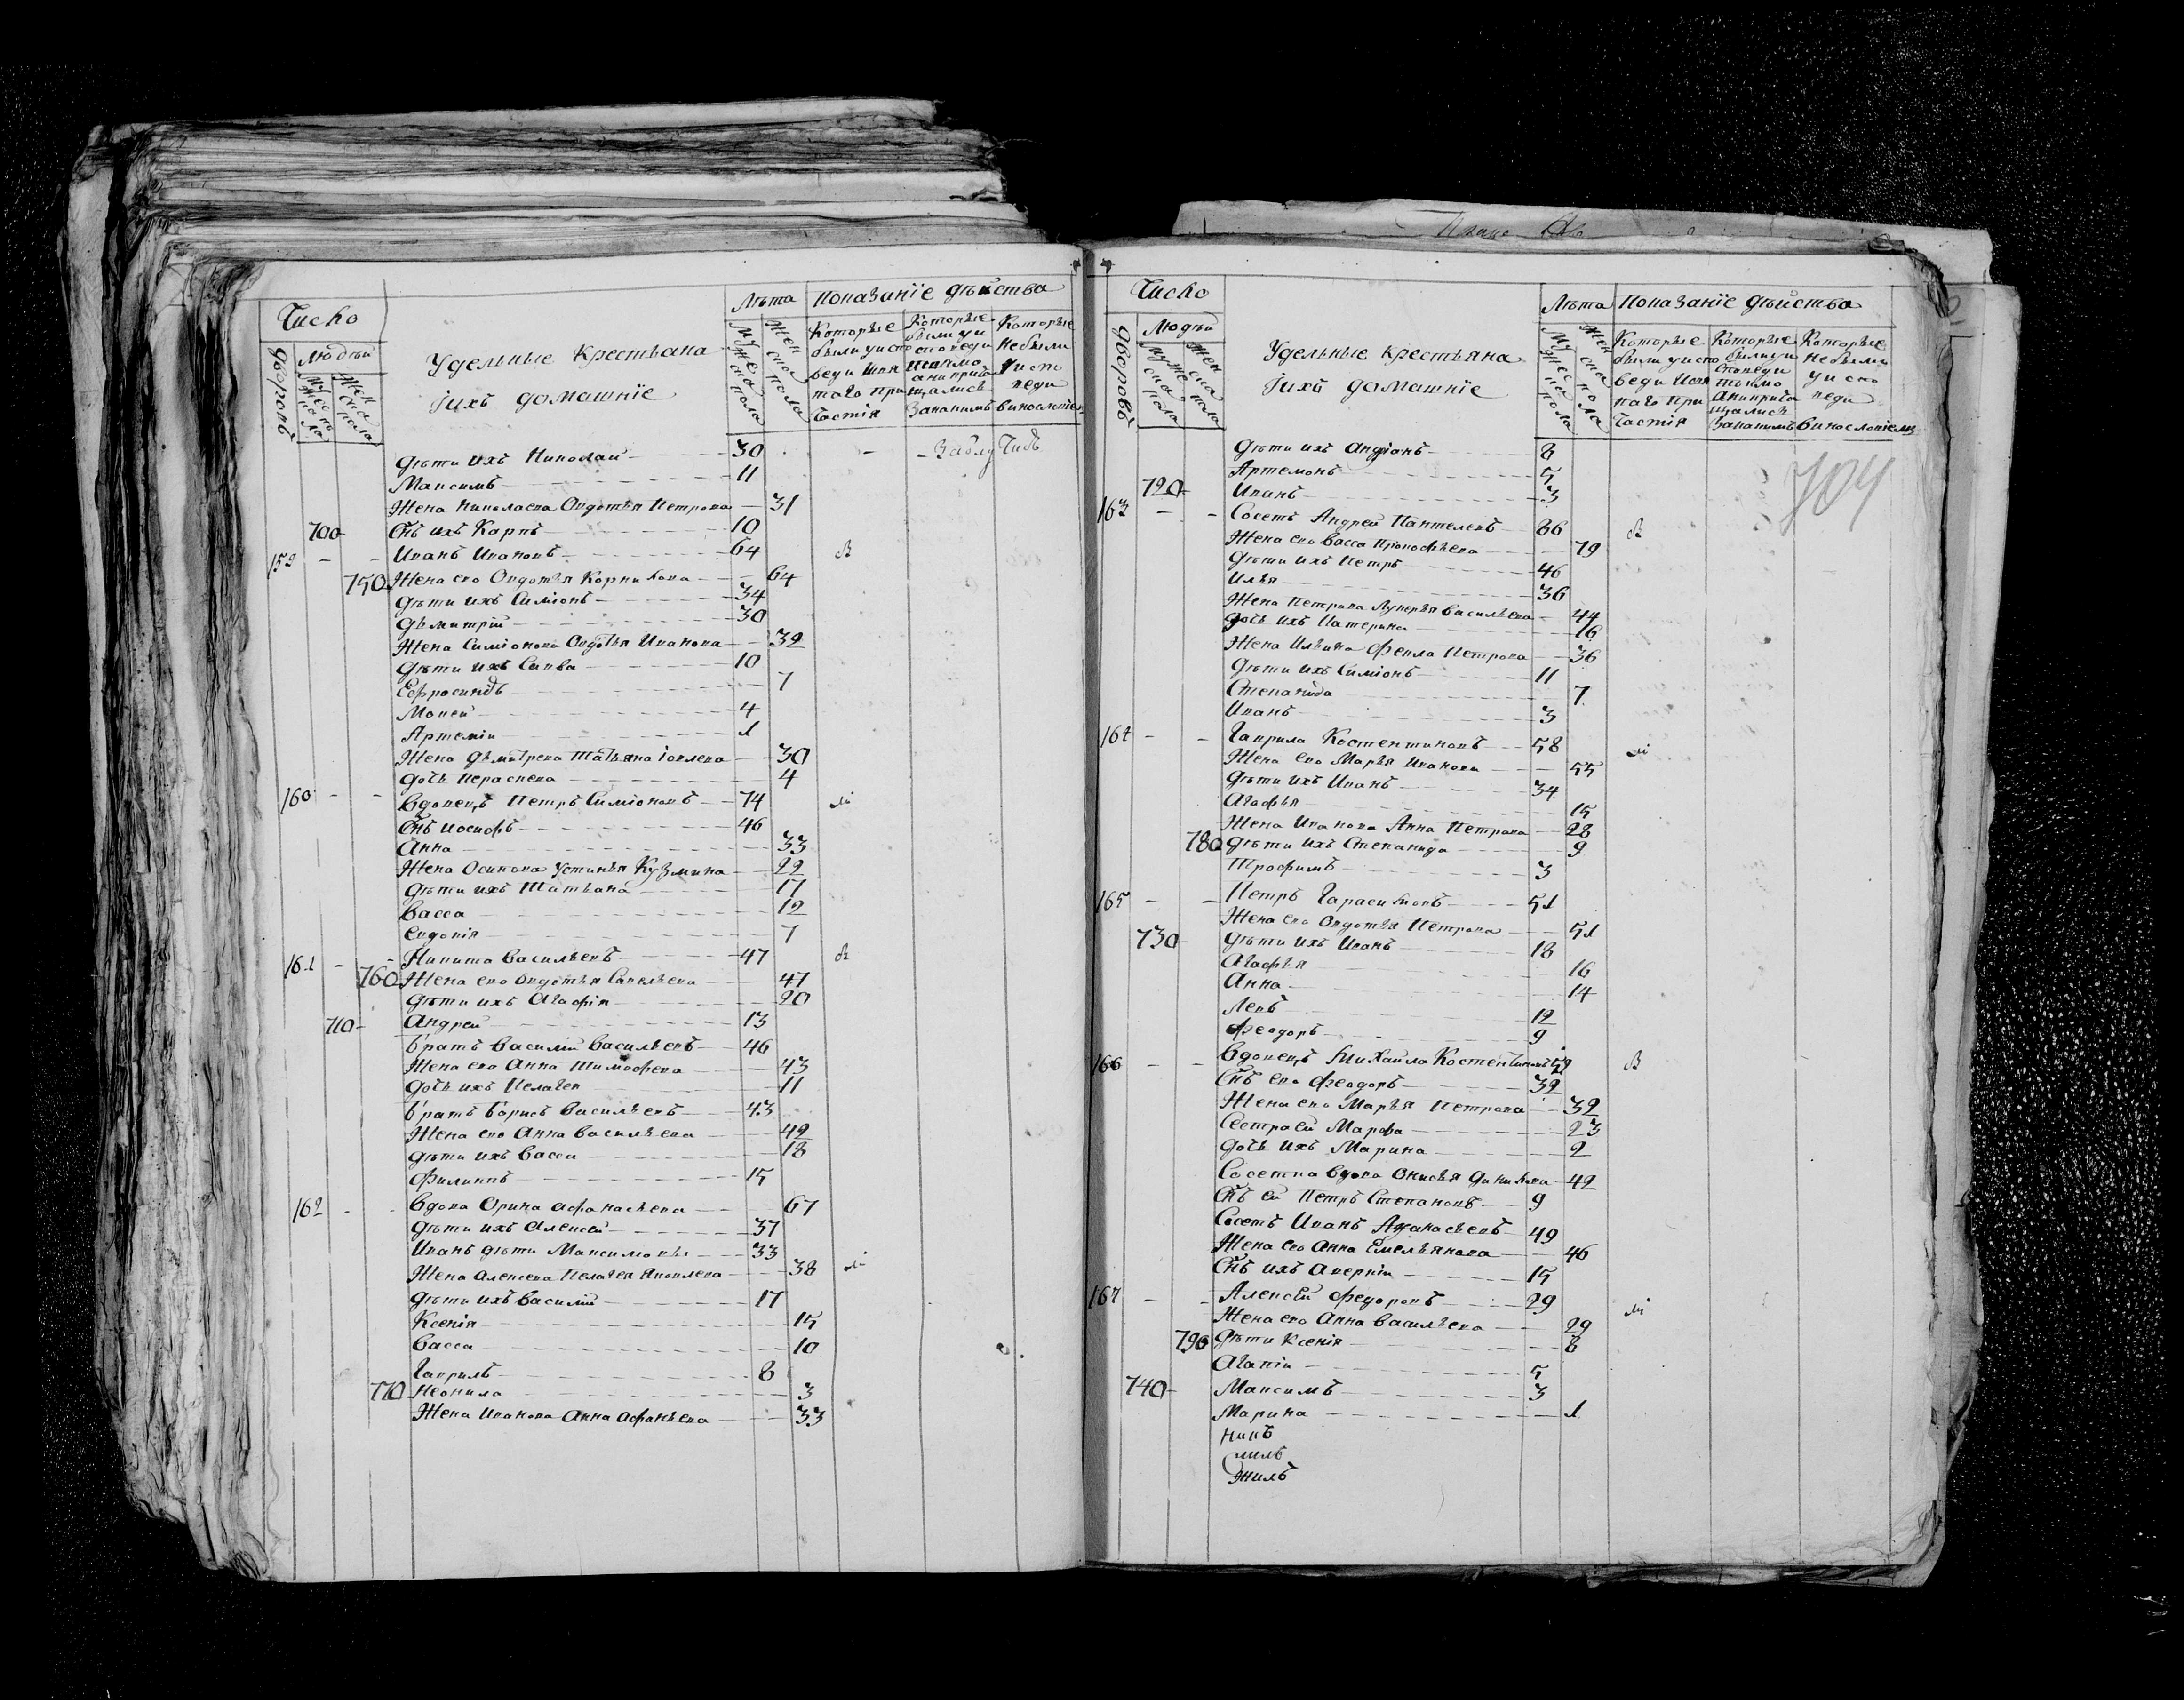 Число
Удельные Крестьяна
Iихъ домашнiе
Лѣта
Показанїе дѣйства
Дворовъ
Людѣй
Мужеска пола
Женска пола
Мужеска пола
Женска пола
Которые были уиспо веди Исвятаго При Частiя
Которые были уи споведи токмо анипричащались Закакимъ
Которые Небыли Уиспо веди
Виносло
Дѣти ихъ Николай 30 Заблу Чидъ
Максимъ 11
Жена Николаева Овдотья Петрова 31
700 Сн҃ъ ихъ Карпъ 10
159 Иванъ Ивановъ 64
750 Жена его Овдотья Корнилова 64
Дѣти ихъ Симiонъ 34
Дьмитрiй 30
Жена Симiонова Овдотья Иванова 32
Дѣти ихъ Савва 10
7
Мокей 4
Артемiи 1
Жена Дьмитрева Татьяна Iовлева 30
дочь Параскева 4
160 Вдовецъ Петръ Симiоновъ 74
Сн҃ъ Иосифъ 46
Анна 33
Жена Осипова Устинья Кузмина 22
Дѣти ихъ Татьана 17
Васса 12
Евдокiя 7
161 Никита Васильевъ 47
760 Жена его Овдотья Савельева 47
Дѣти ихъ Агафiя 20
710 Андрей 13
братъ Василiй Васильевъ 46
Жена его Анна Тимофеева 43
дочь ихъ Пелагея 11
братъ Борисъ Васильевъ 43
Жена его Анна Васильева 42
Дѣти ихъ Васса 18
Филиппъ 15
162 Вдова Орина Афанасьева 67
Дѣти ихъ Алексей 37
Иванъ дѣти Максимовы 33
Жена Алексева Пелагея Яковлева 38
Дѣти ихъ Василiй 17
Ксенiя 15
Васса 10
Гаврилъ 8
770 Неонила 3
Жена Иванова Анна 33
Число
Удельные крестьяна
Iихъ домашнiе
Лѣта
Показанїе дѣйства
Дворовъ
Людѣй
Мужеска пола
Женска пола
Мужеска пола
Женска пола
Которые были уиспо веди Исвя таго При Частiя
Которые были уи споведи токмо Анипричащались Закакимъ
Которые небыли Уиспо веди
Винословiемъ
704
Дѣти ихъ Андрiонъ 8
Артемонъ 5
720 Иванъ 3
163 Сосетъ Андрей Пантелевъ 86
Жена его Васса Прокофьева 79
Дѣти ихъ Петръ 46
Илья 36
Жена Петрова Лукерья Васильева 44
Дочь ихъ Катерина 16
Жена Ильина Фекла Петрова 36
Дѣти ихъ Симiонъ 11
Степанида 7
Иванъ 3
164 Гаврила Костентиновъ 58
Жена его Марья Иванова 55
Дѣти ихъ Иванъ 34
Агафья 15
Жена Иванова Анна Петрова 28
780 Дѣти ихъ Степанида 9
Трофимъ 3
165 Петръ Гарасимовъ 51
Жена его Овдотья Петрова 51
730 Дѣти ихъ Иванъ 18
Агафья 16
Анна 14
Левъ 12
Феодоръ 9
166 Вдовецъ Михаила Костентиновъ 59
Сн҃ъ его Феодоръ 32
Жена его Марья Петрова 32
Сестра ей Марфа 23
дочь ихъ Марина 2
Сосетка Вдова Онисья Данилова 42
Сн҃ъ ей Петръ Степановъ 9
Сосетъ Иванъ Афанасьевъ 49
Жена его Анна Емельянова 46
Сн҃ъ ихъ Аверкiи 15
167 Алексѣй Федоровъ 29
Жена его Анна Васильева 29
790 Дѣти Ксенiя 8
Агапiи 5
740 Максимъ 3
Марина 1